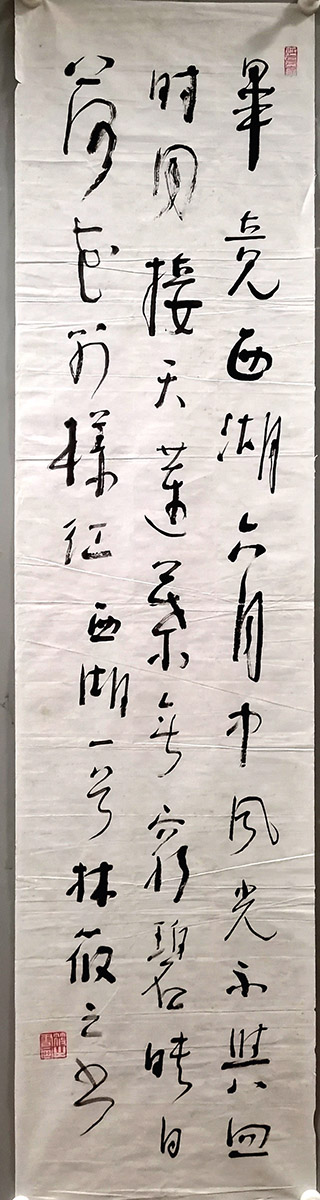 畢竟西湖六月中風光不與四
时同接天蓮葉無窮碧映日
荷花别樣红西湖一首林筱之书